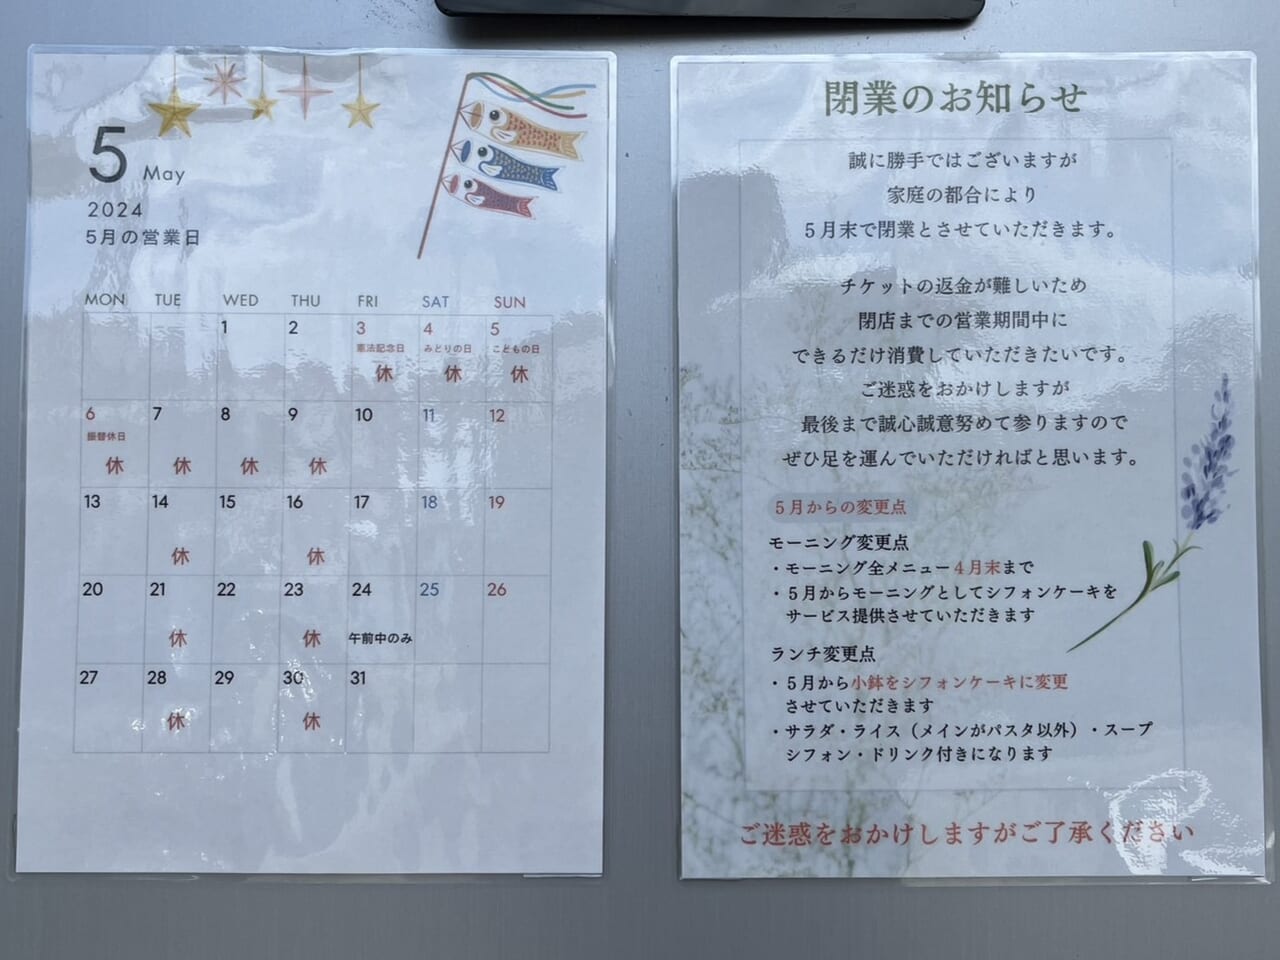 5 May
2024
5月の営業日
MON TUE WED THU FRI SAT SUN
1 2 3 4 5
憲法記念日 みどりの日 こどもの日
休 休 休
6 7 8 9 10 11 12
振替休日
休 休 休 休
13 14 15 16 17 18 19
休 休
20 21 22 23 24 25 26
休 休 午前中のみ
27 28 29 30 31
休 休
閉業のお知らせ
誠に勝手ではございますが
家庭の都合により
5月末で閉業とさせていただきます。
チケットの返金が難しいため
閉店までの営業期間中に
できるだけ消費していただきたいです。
ご迷惑をおかけしますが
最後まで誠心誠意努めて参りますので
ぜひ足を運んでいただければと思います。
5月からの変更点
モーニング変更点
・モーニング全メニュー4月末まで
・5月からモーニングとしてシフォンケーキを
サービス提供させていただきます
ランチ変更点
・5月から小鉢をシフォンケーキに変更
させていただきます
・サラダ・ライス（メインがパスタ以外）・スープ
シフォン・ドリンク付きになります
ご迷惑をおかけしますがご了承ください